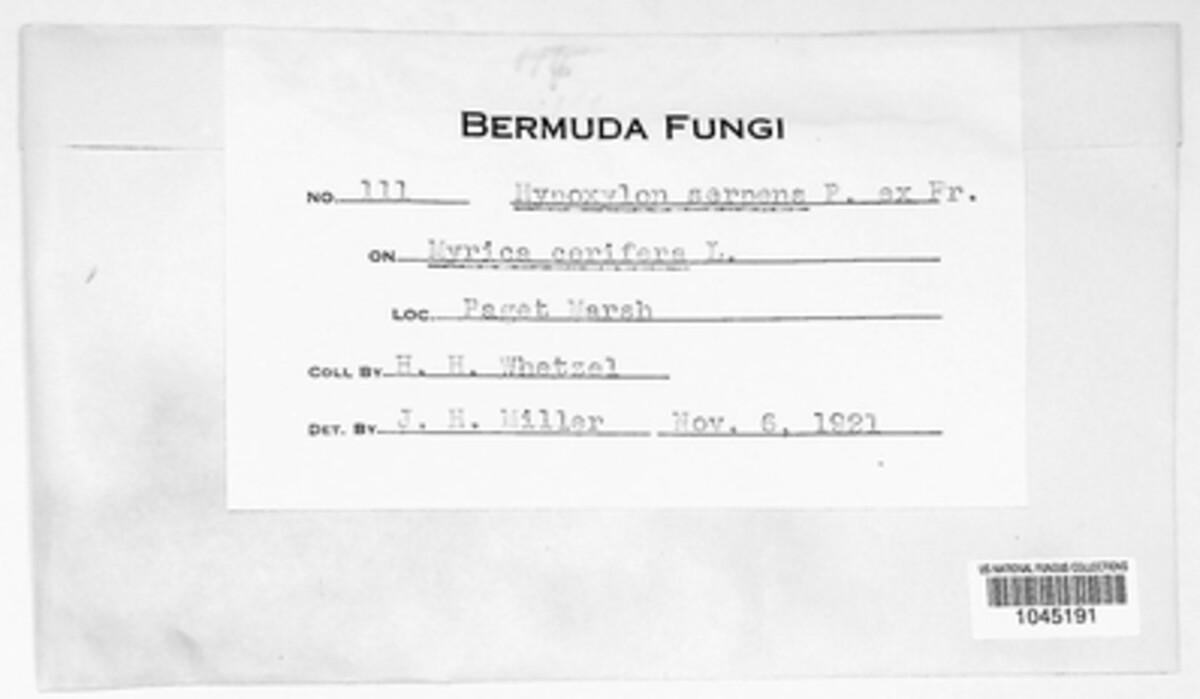 BERMUDA FUNGI
NO. 111 Hypoxylon serpens P. ex Fr.
ON Myrica cerifera L.
LOC. Paget Marsh
COLL BY H. H. Whetzel
DET. BY J. H. Miller Nov. 6, 1921
US NATIONAL FUNGUS COLLECTIONS
1045191